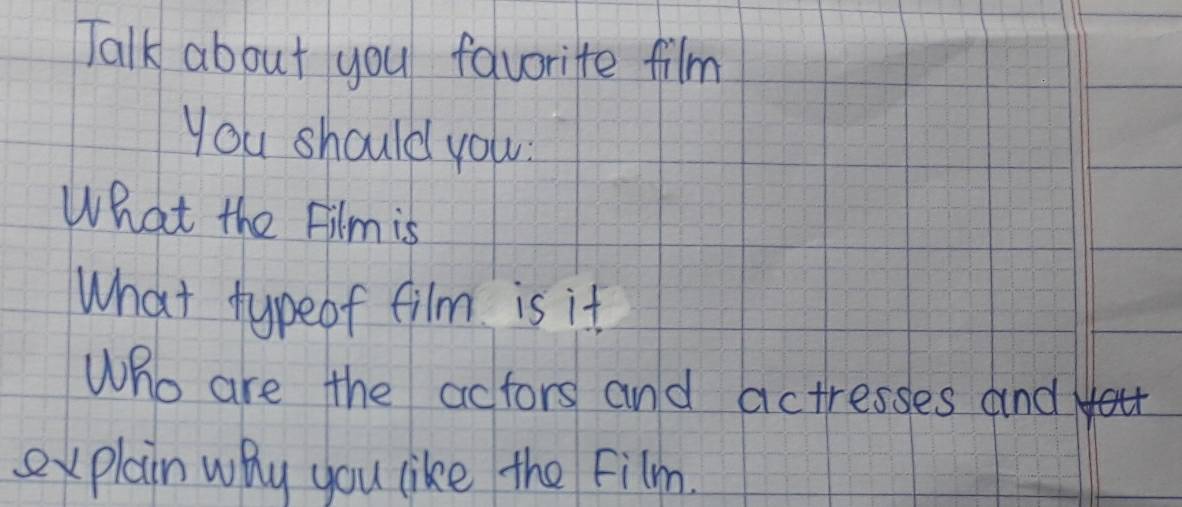 Talk about you favorite film
You should you:
What the Film is
What type of film is it
Who are the actors and actresses and you
explain why you like the Film.